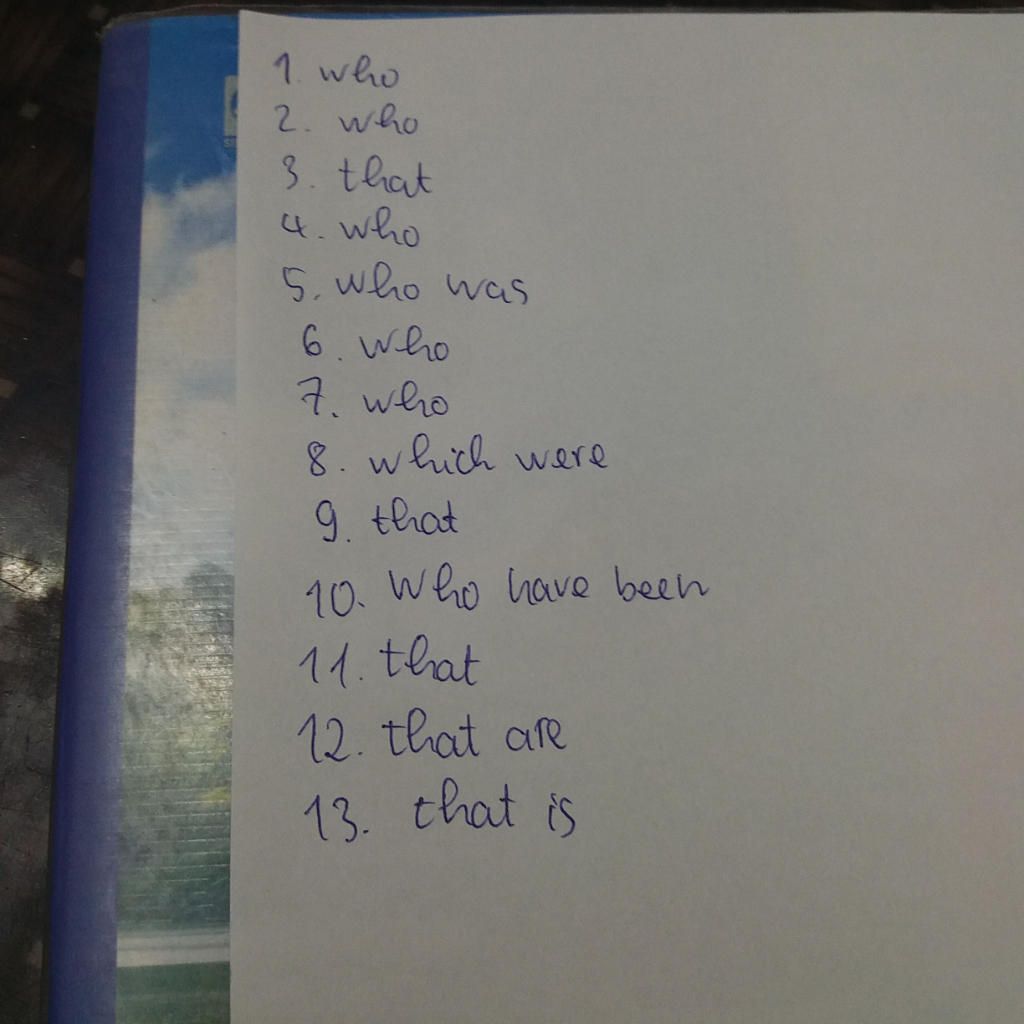 1. who
2. who
3. that
4. who
5. who was
6. who
7. who
8. which were
9. that
10. who have been
11. that
12. that are
13. that is